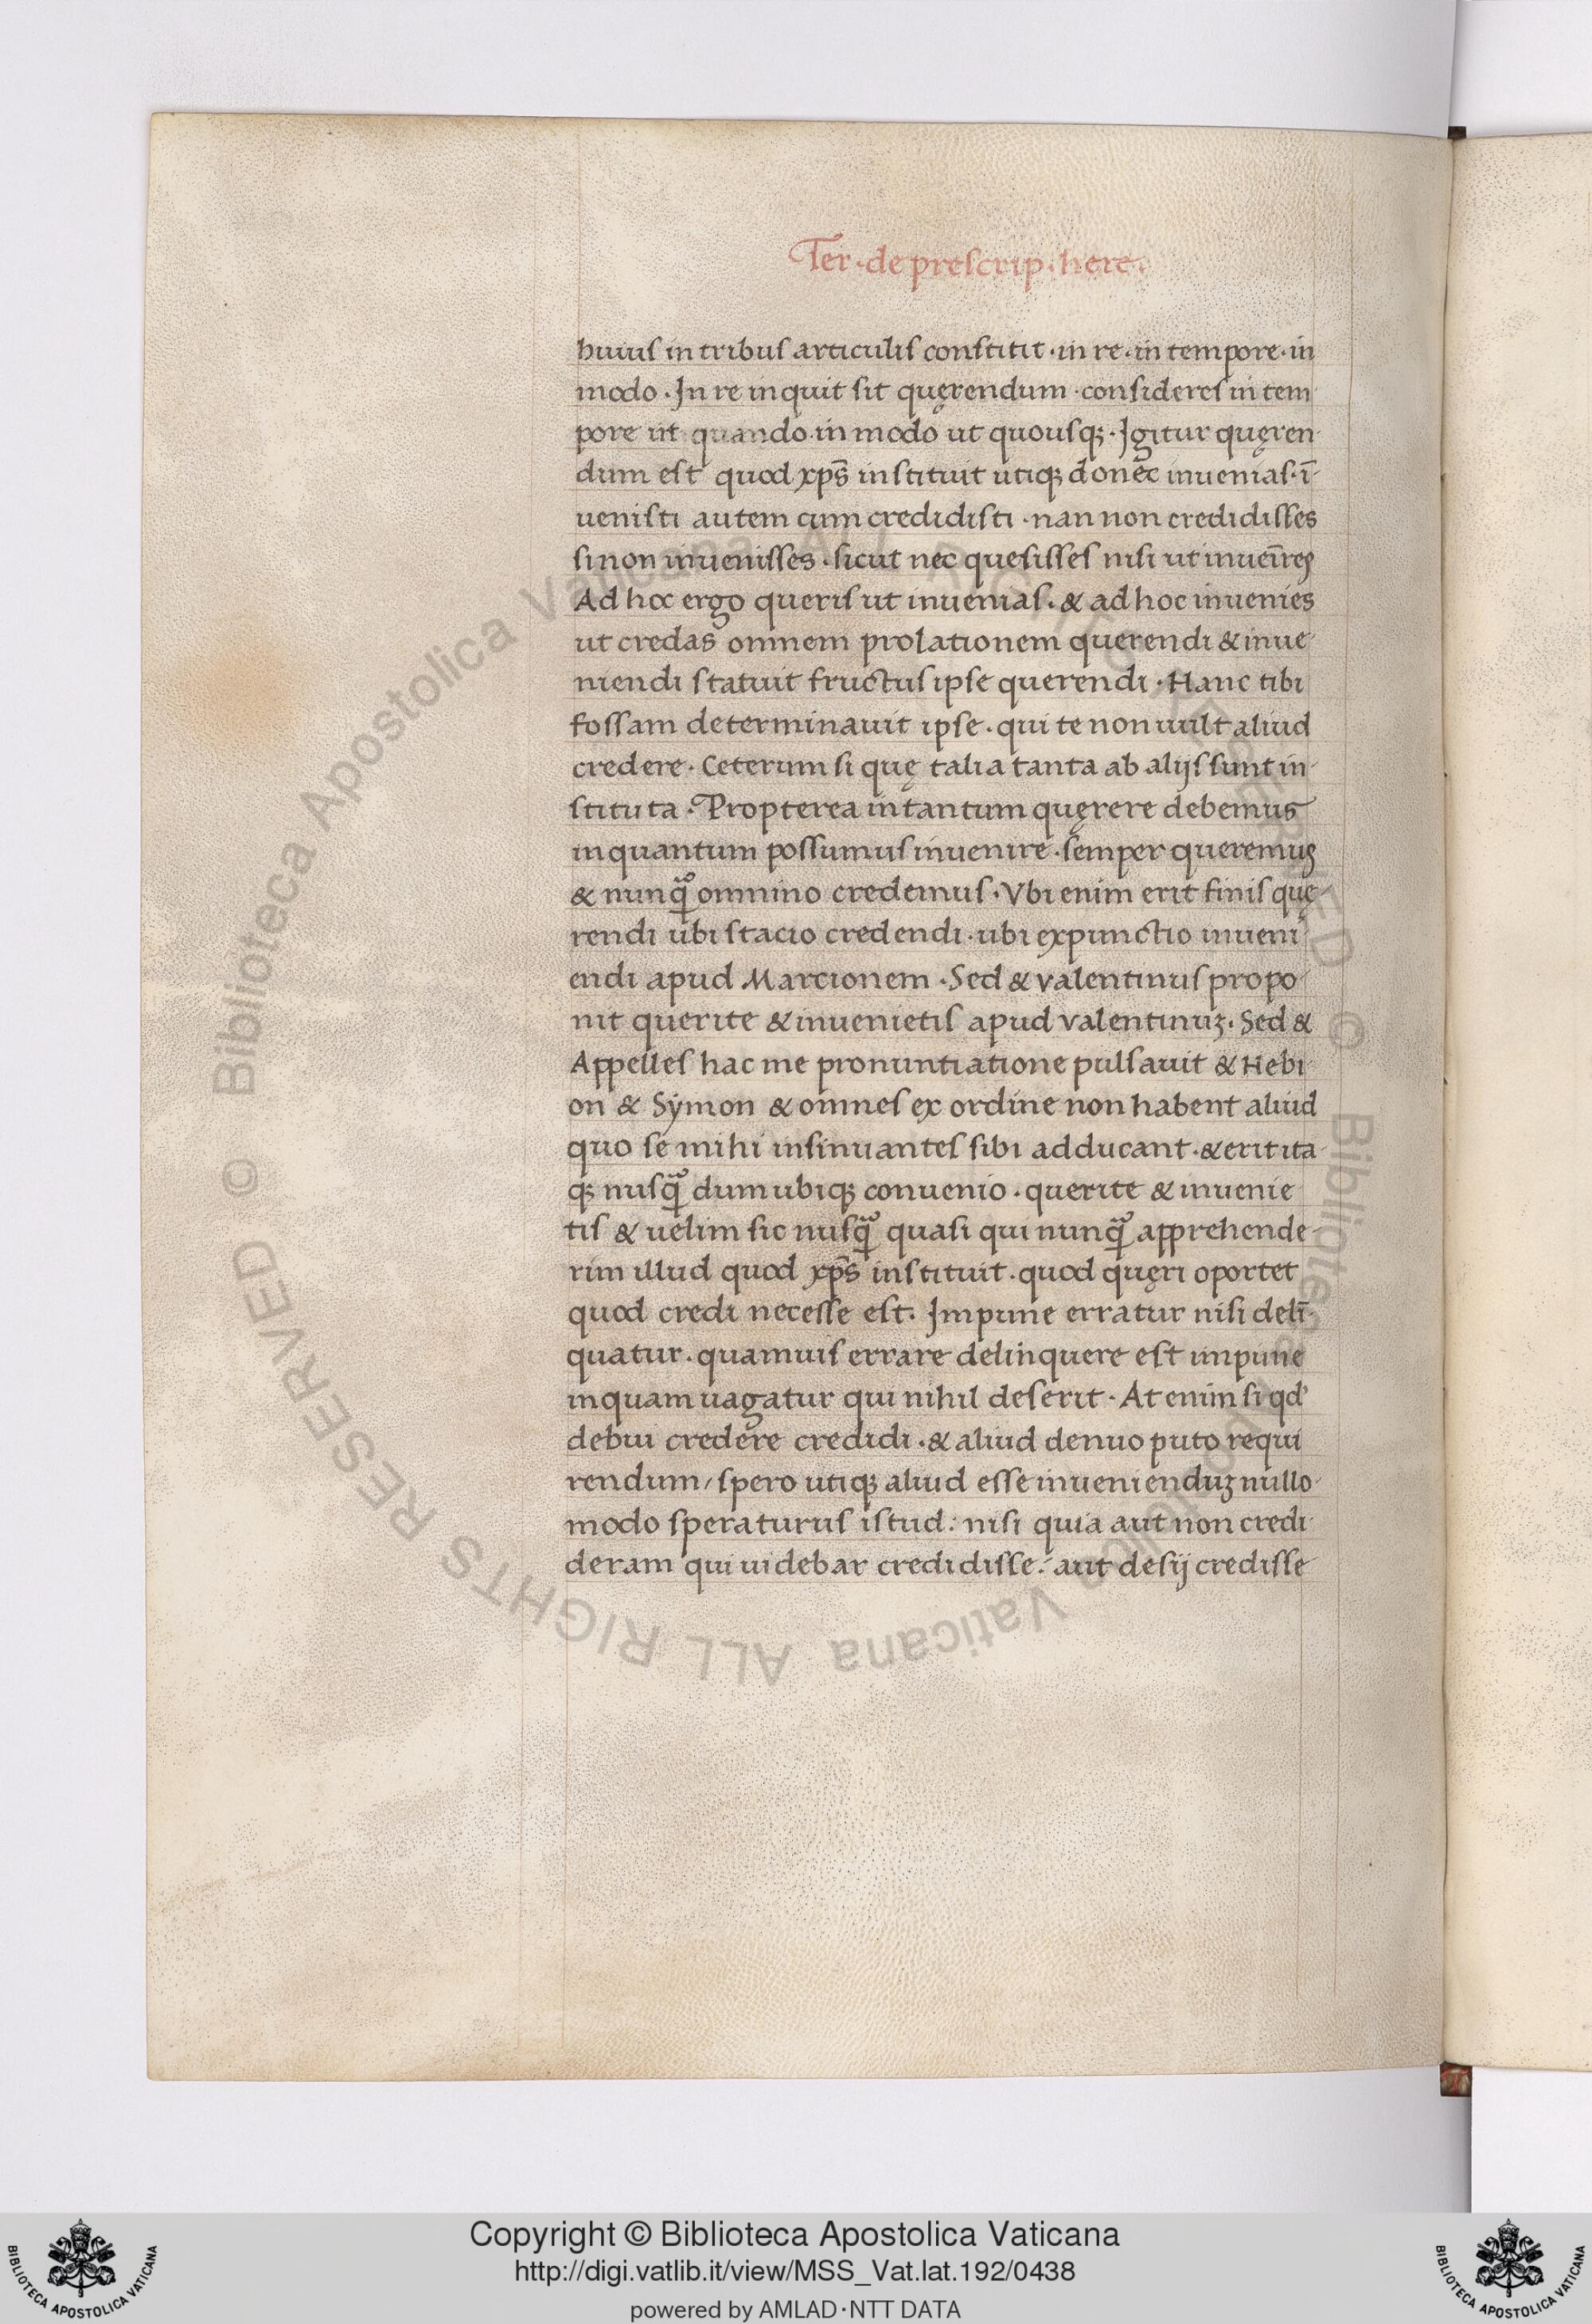 Ter·de prescrip·here·
huius in tribus articulis constitit·in re·in tempore·in
modo·In re inquit sit quęrendum·consideres in tem
pore ut quando in modo ut quousqꝫ·Igitur quęren
dum est quod xp̄s instituit utiqꝫ donec inuenias·ī
uenisti autem cum credidisti·nan non credidisses
si non inuenisses·sicut nec quesisses nisi ut
Ad hoc ergo queris ut inuenias·& ad hoc inuenies
ut credas omnem prolationem querendi & inue
niendi statuit fructus ipse querendi·Hanc tibi
fossam determinauit ipse·qui te non uult aliud
credere·Ceterum si quę talia tanta ab alijs sunt in
stituta·Propterea in tantum quęrere debemus
in quantum possumus inuenire·semper queremus
& nunꝗ̃ omnino credemus·Vbi enim erit finis quę
rendi ubi stacio credendi·ubi expunctio inueni
endi apud Marcionem·Sed & valentinus propo
nit querite & inuenietis apud valentinuꝫ·Sed &
Appelles hac me pronuntiatione pulsauit & Hebi
on & Symon & omnes ex ordine non habent aliud
quo se mihi insinuantes sibi adducant·& erit ita
qꝫ nusꝗ̃ dum ubiqꝫ conuenio·querite & inuenie
tis & uelim sic nusꝗ̃ quasi qui nunꝗ̃ apprehende
rim illud quod xp̄s instituit·quod quęri oportet
quod credi necesse est·Impune erratur nisi delī
quatur·quamuis errare delinquere est impune
inquam uagatur qui nihil deserit·At enim si qd'
debui credere credidi·& aliud denuo puto requi
rendum/spero utiqꝫ aliud esse inuenienduꝫ nullo
modo speraturus istud: nisi quia aut non credi
deram qui uidebar credidisse: aut desij credisse
© Biblioteca Apostolica Vaticana ALL RIGHTS RESERVED © Biblioteca Apostolica Vaticana ALL RIGHTS RESERVED
Copyright © Biblioteca Apostolica Vaticana
http://digi.vatlib.it/view/MSS_Vat.lat.192/0438
powered by AMLAD·NTT DATA
BIBLIOTECA APOSTOLICA VATICANA
BIBLIOTECA APOSTOLICA VATICANA